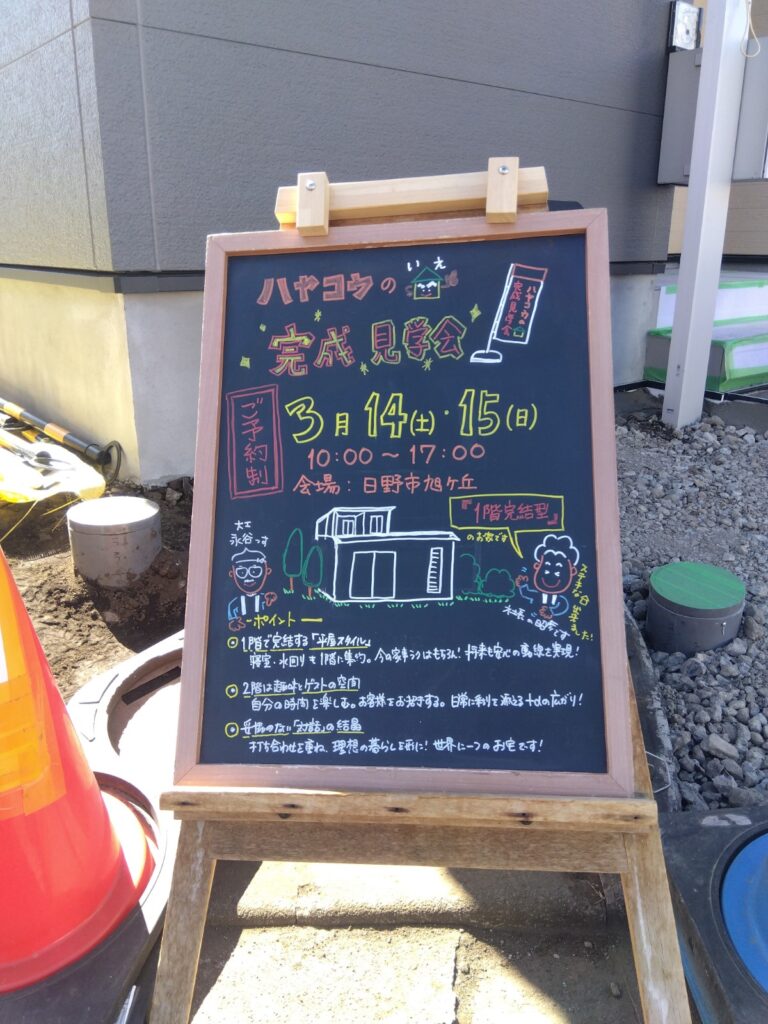 いえ
ハヤコウの
完成見学会
ハヤコウの
完成見学会
ご予約制
3月14(土)・15(日)
10:00～17:00
会場：日野市旭ケ丘
『1階完結型』
のお家です
大工
永谷っす
ポイント
1階で完結する「平屋スタイル」
寝室・水回りを1階に集約。今の家事ラクはもちろん！将来も安心の動線を実現！
2階は趣味とゲストの空間
自分の時間を楽しむ。お客様をお招きする。日常に彩りを添える+αの広がり！
妥協のない「対話」の結晶
打ち合わせを重ね、理想の暮らしを形に！世界に一つのお宅です！